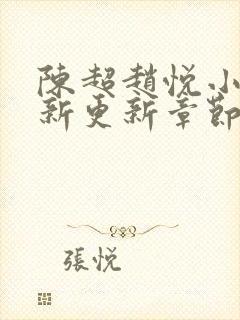 陳超趙悅小
新更新章節
張悅